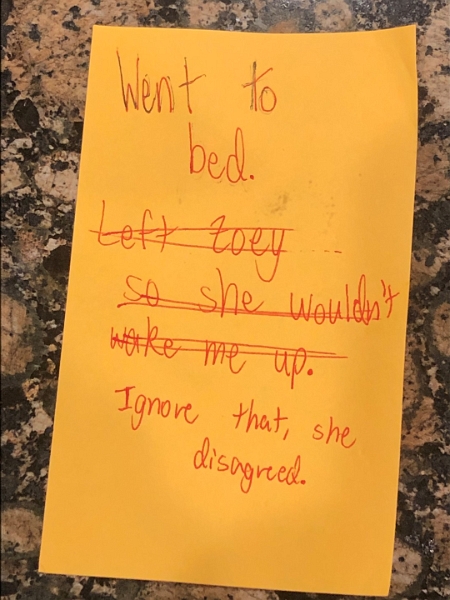 Went to
bed.
Left Zoey
so she wouldn't
wake me up.
Ignore that, she
disagreed.